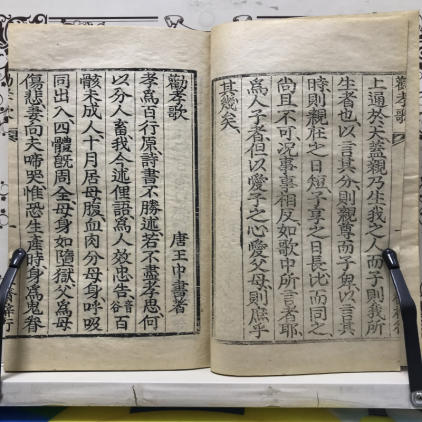 勸孝歌
上通於天蓋親乃生我之人而子則我所
生者也以言其分則親尊而子卑以言其
時則親在之日短子享之日長比而同之
尚且不可況事事相反如歌中所言者耶
爲人子者但以愛子之心愛父母則庶乎
其幾矣
勸孝歌
唐王中書著
孝爲百行原詩書不勝述若不盡孝思何
以分人畜我今述俚語爲人效忠告音谷百
骸未成人十月居母腹血肉分母身呼吸
同出入四體旣周全母身如墮獄父爲母
傷悲妻向夫啼哭惟恐生產時身爲鬼眷